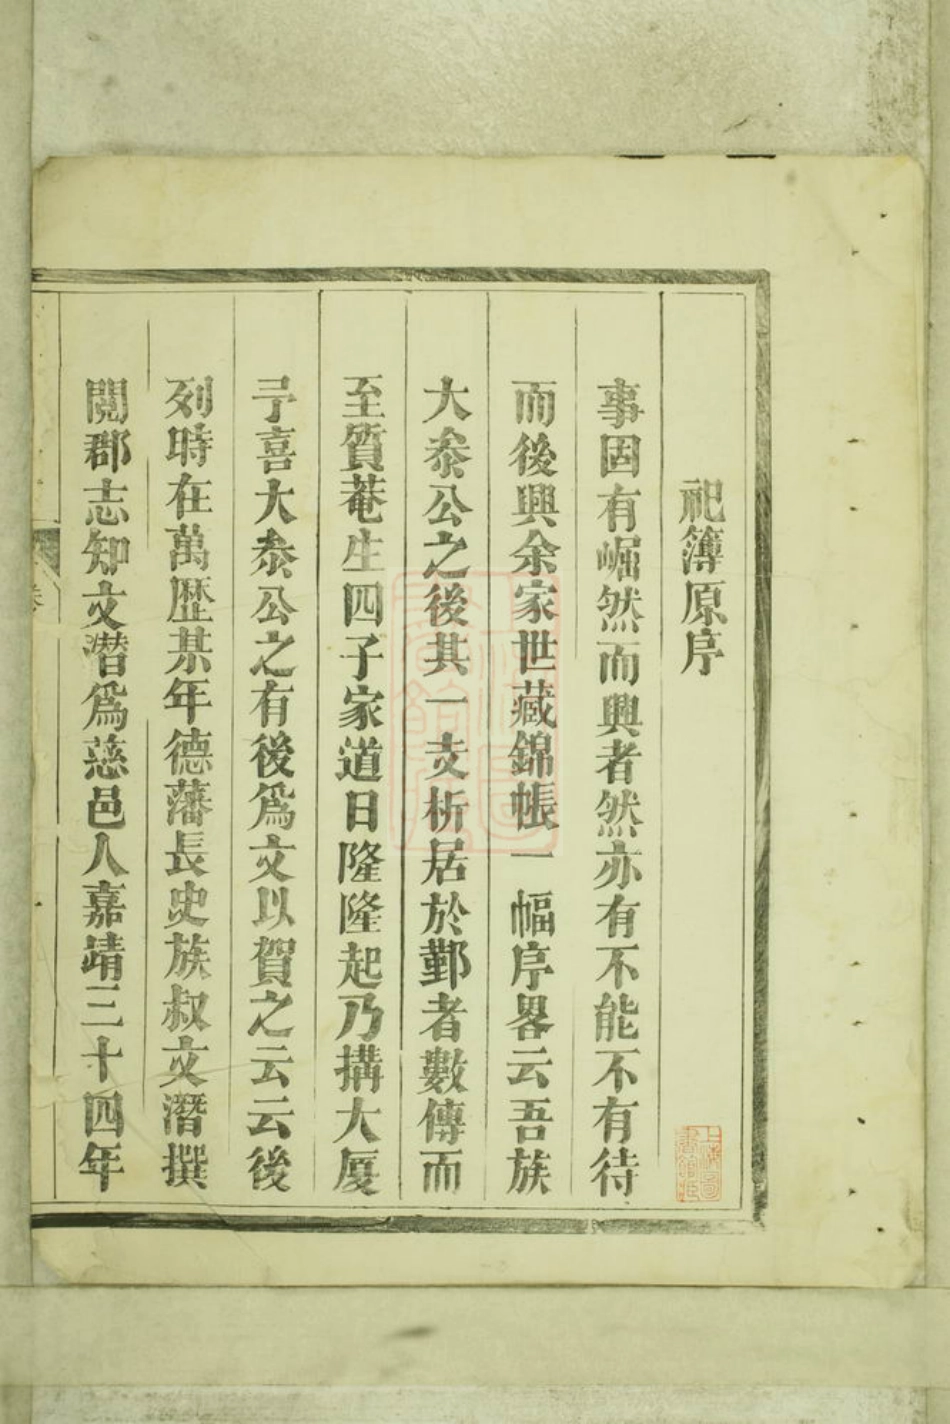 祀簿原序
事固有崛然而興者然亦有不能不有待
而後興余家世藏錦帳一幅序畧云吾族
大叅公之後其一支析居於鄞者數傳而
至質菴生四子家道日隆隆起乃搆大厦
予喜大叅公之有後爲文以賀之云云後
列時在萬歴某年德藩長史族叔文潛撰
閱郡志知文潛爲慈邑人嘉靖三十四年